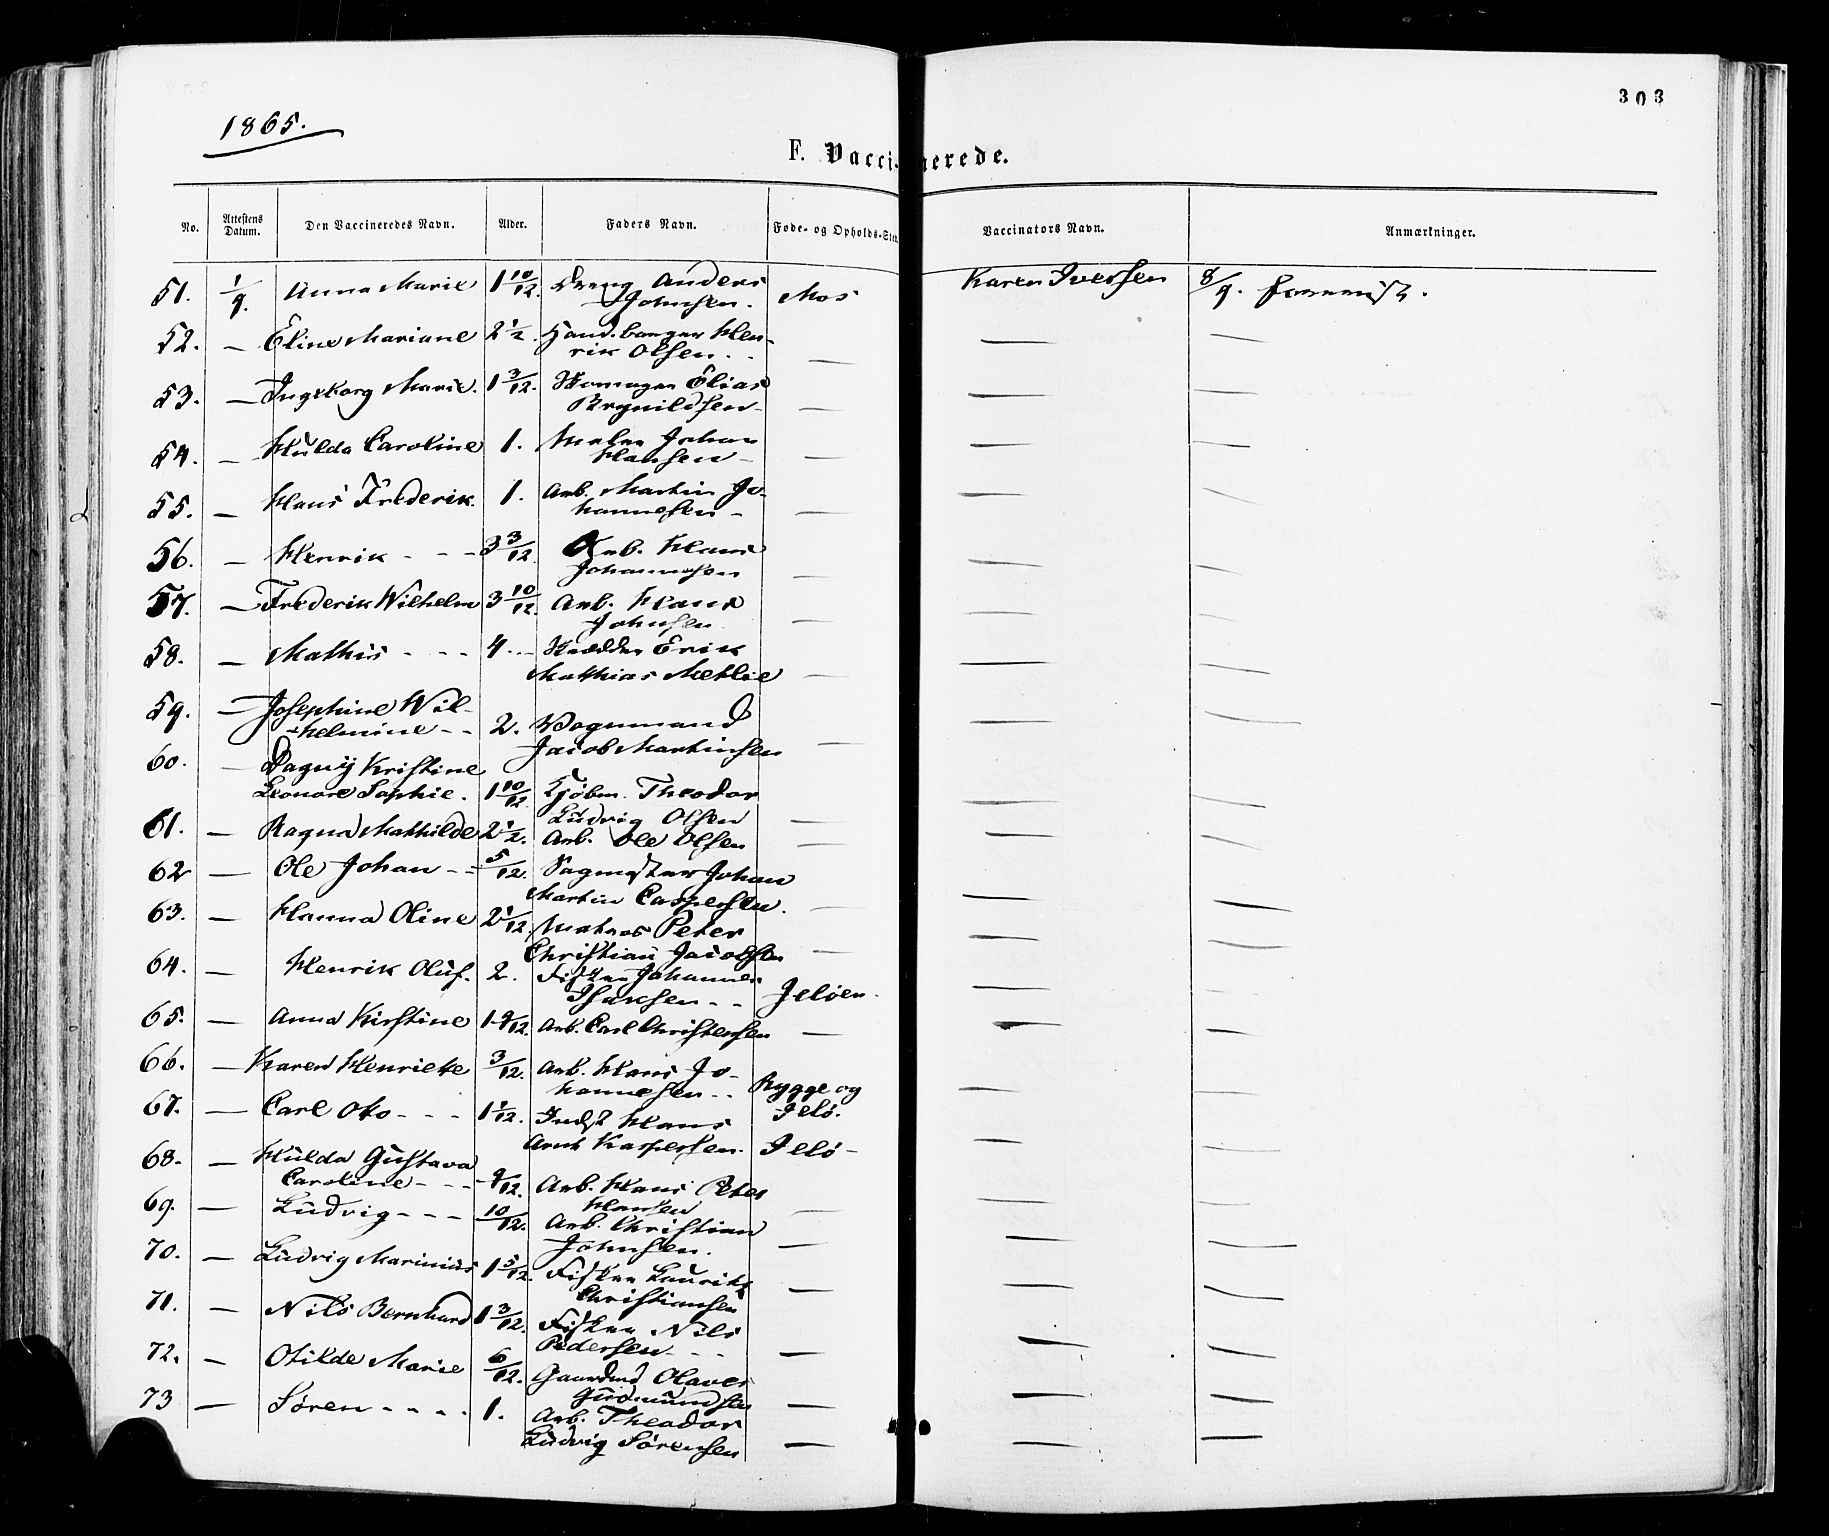 303
1865.
F. Vaccinerede.
No. Attestens Datum. Den Vaccineredes Navn. Alder. Faders Navn. Føde- og Opholds-Sted Vaccinators Navn. Anmærkninger.
51. 1/9. Anna Marie 1 10/12. Dreng Anders Johnsen. Mos Karen Iversen 8/9.
52. — Eline Mariane 2 1/2. Henrik Olsen. — — —
53. — Ingeborg Marie. 1 3/12. Elias Brynildsen — — — —
54. — Hulda Caroline 1. Maler Johan Hansen — — — —
55. — Hans Frederik. 1. Arb. Martin Johannesen — — — —
56. — Henrik - - - 3 3/12. Arb. Hans Johannesen — — —
57. — Frederik Wilhelm 3 10/12. Arb. Hans Johnsen. — — —
58. — Mathis - - - 4 - - Skrædder Erik Mathias Methie — — —
59. — Josephine Wilhelmine - - 2. Vognmand Jacob Martinsen — — —
60. — Dagny Kristine Leonore Sophie. 1 10/12. Kjøbm. Theodor Ludvig Olsen — — —
61. — Ragna Mathilde 2 1/2. Arb. Ole Olsen — — —
62 — Ole Johan - - 5/12. Sagmester Johan Martin Caspersen. — — —
63. — Hanna Oline 2 1/12. Matros Peter Christian Jacobsen — — —
64. — Henrik Oluf. 2. Fisker Johannes Isaksen - - Jeløen. — —
65. — Anna Kirstine 1 9/12. Arb. Carl Christensen — — —
66. — Karen Henriette 3/12. Arb. Hans Johannesen - - Rygge og Jelø. — —
67. — Carl Otto - - - 1 1/12. Indst Hans Arnt Kaspersen. Jelø - — —
68. — Hulda Gustava Caroline - - - 9/12. Arb. Hans Peter Hansen — — —
69. — Ludvig - - - 10/12. Arb. Christian Johnsen. — — —
70. — Ludvig Marinius 1 5/12. Fisker Laurits Christiansen — — —
71. — Nils Bernhard 1 3/12. Fisker Nils Pedersen - - - — — —
72. — Otilde Marie 6/12. Gaardmd Olaves Gudmundsen — — —
73 — Søren - - - - 1. Arb. Theodor Ludvig Sørensen — — —